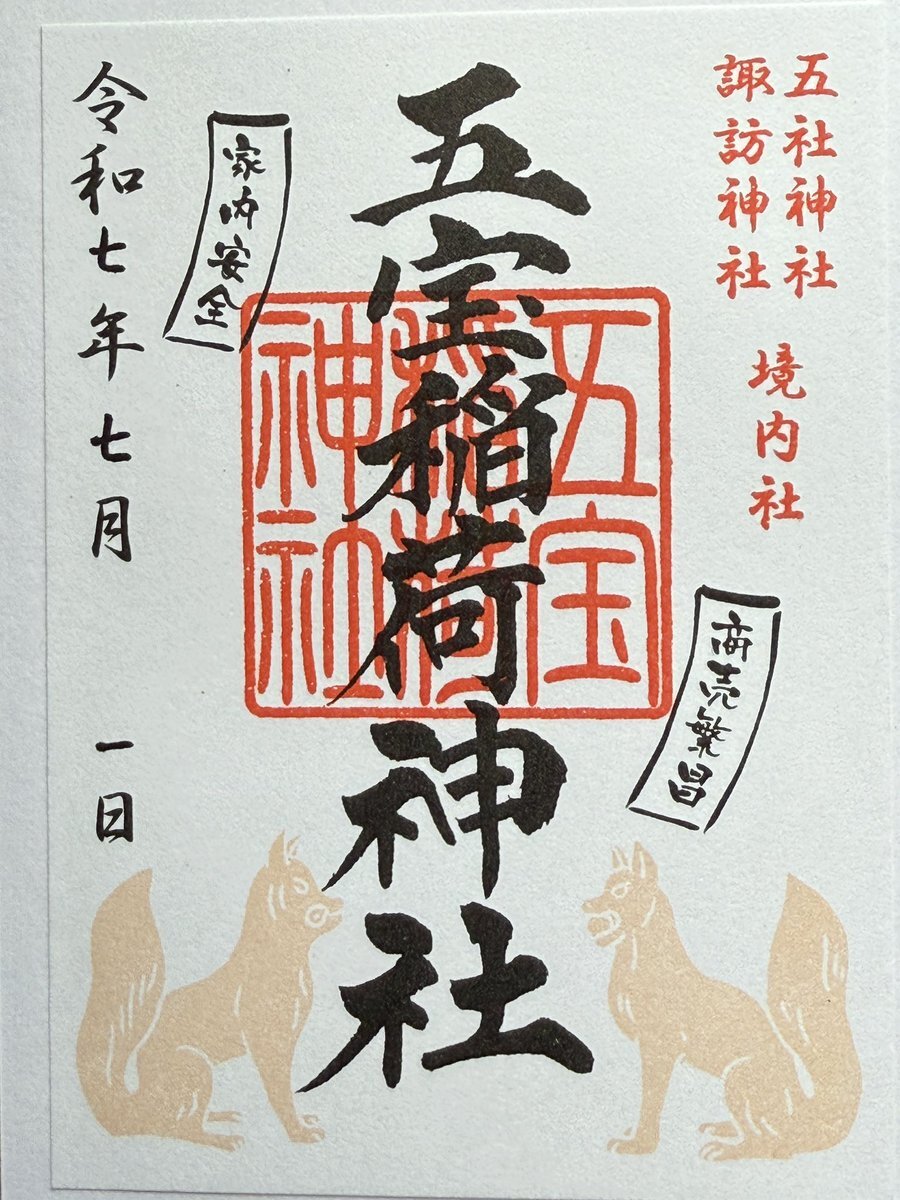 五社神社
諏訪神社
境内社
商売繁昌
五宝稲荷神社
五宝
稲荷
神社
家内安全
令和七年七月 一日